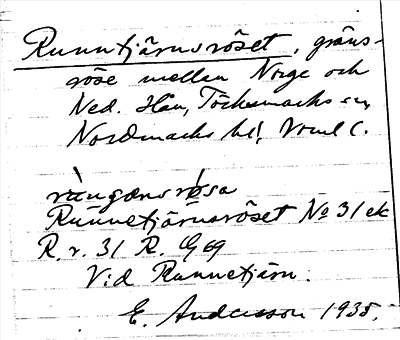 Runntjärnsröset, gräns-
röse mellan Norge och
Ned. Hån, Töcksmarks sn,
Nordmarks hd, Vrml C.
Runnetjärnsröset No 31 ek
R. r. 31 R. G 69
Vid Runnetjärn.
E. Andersson 1935.